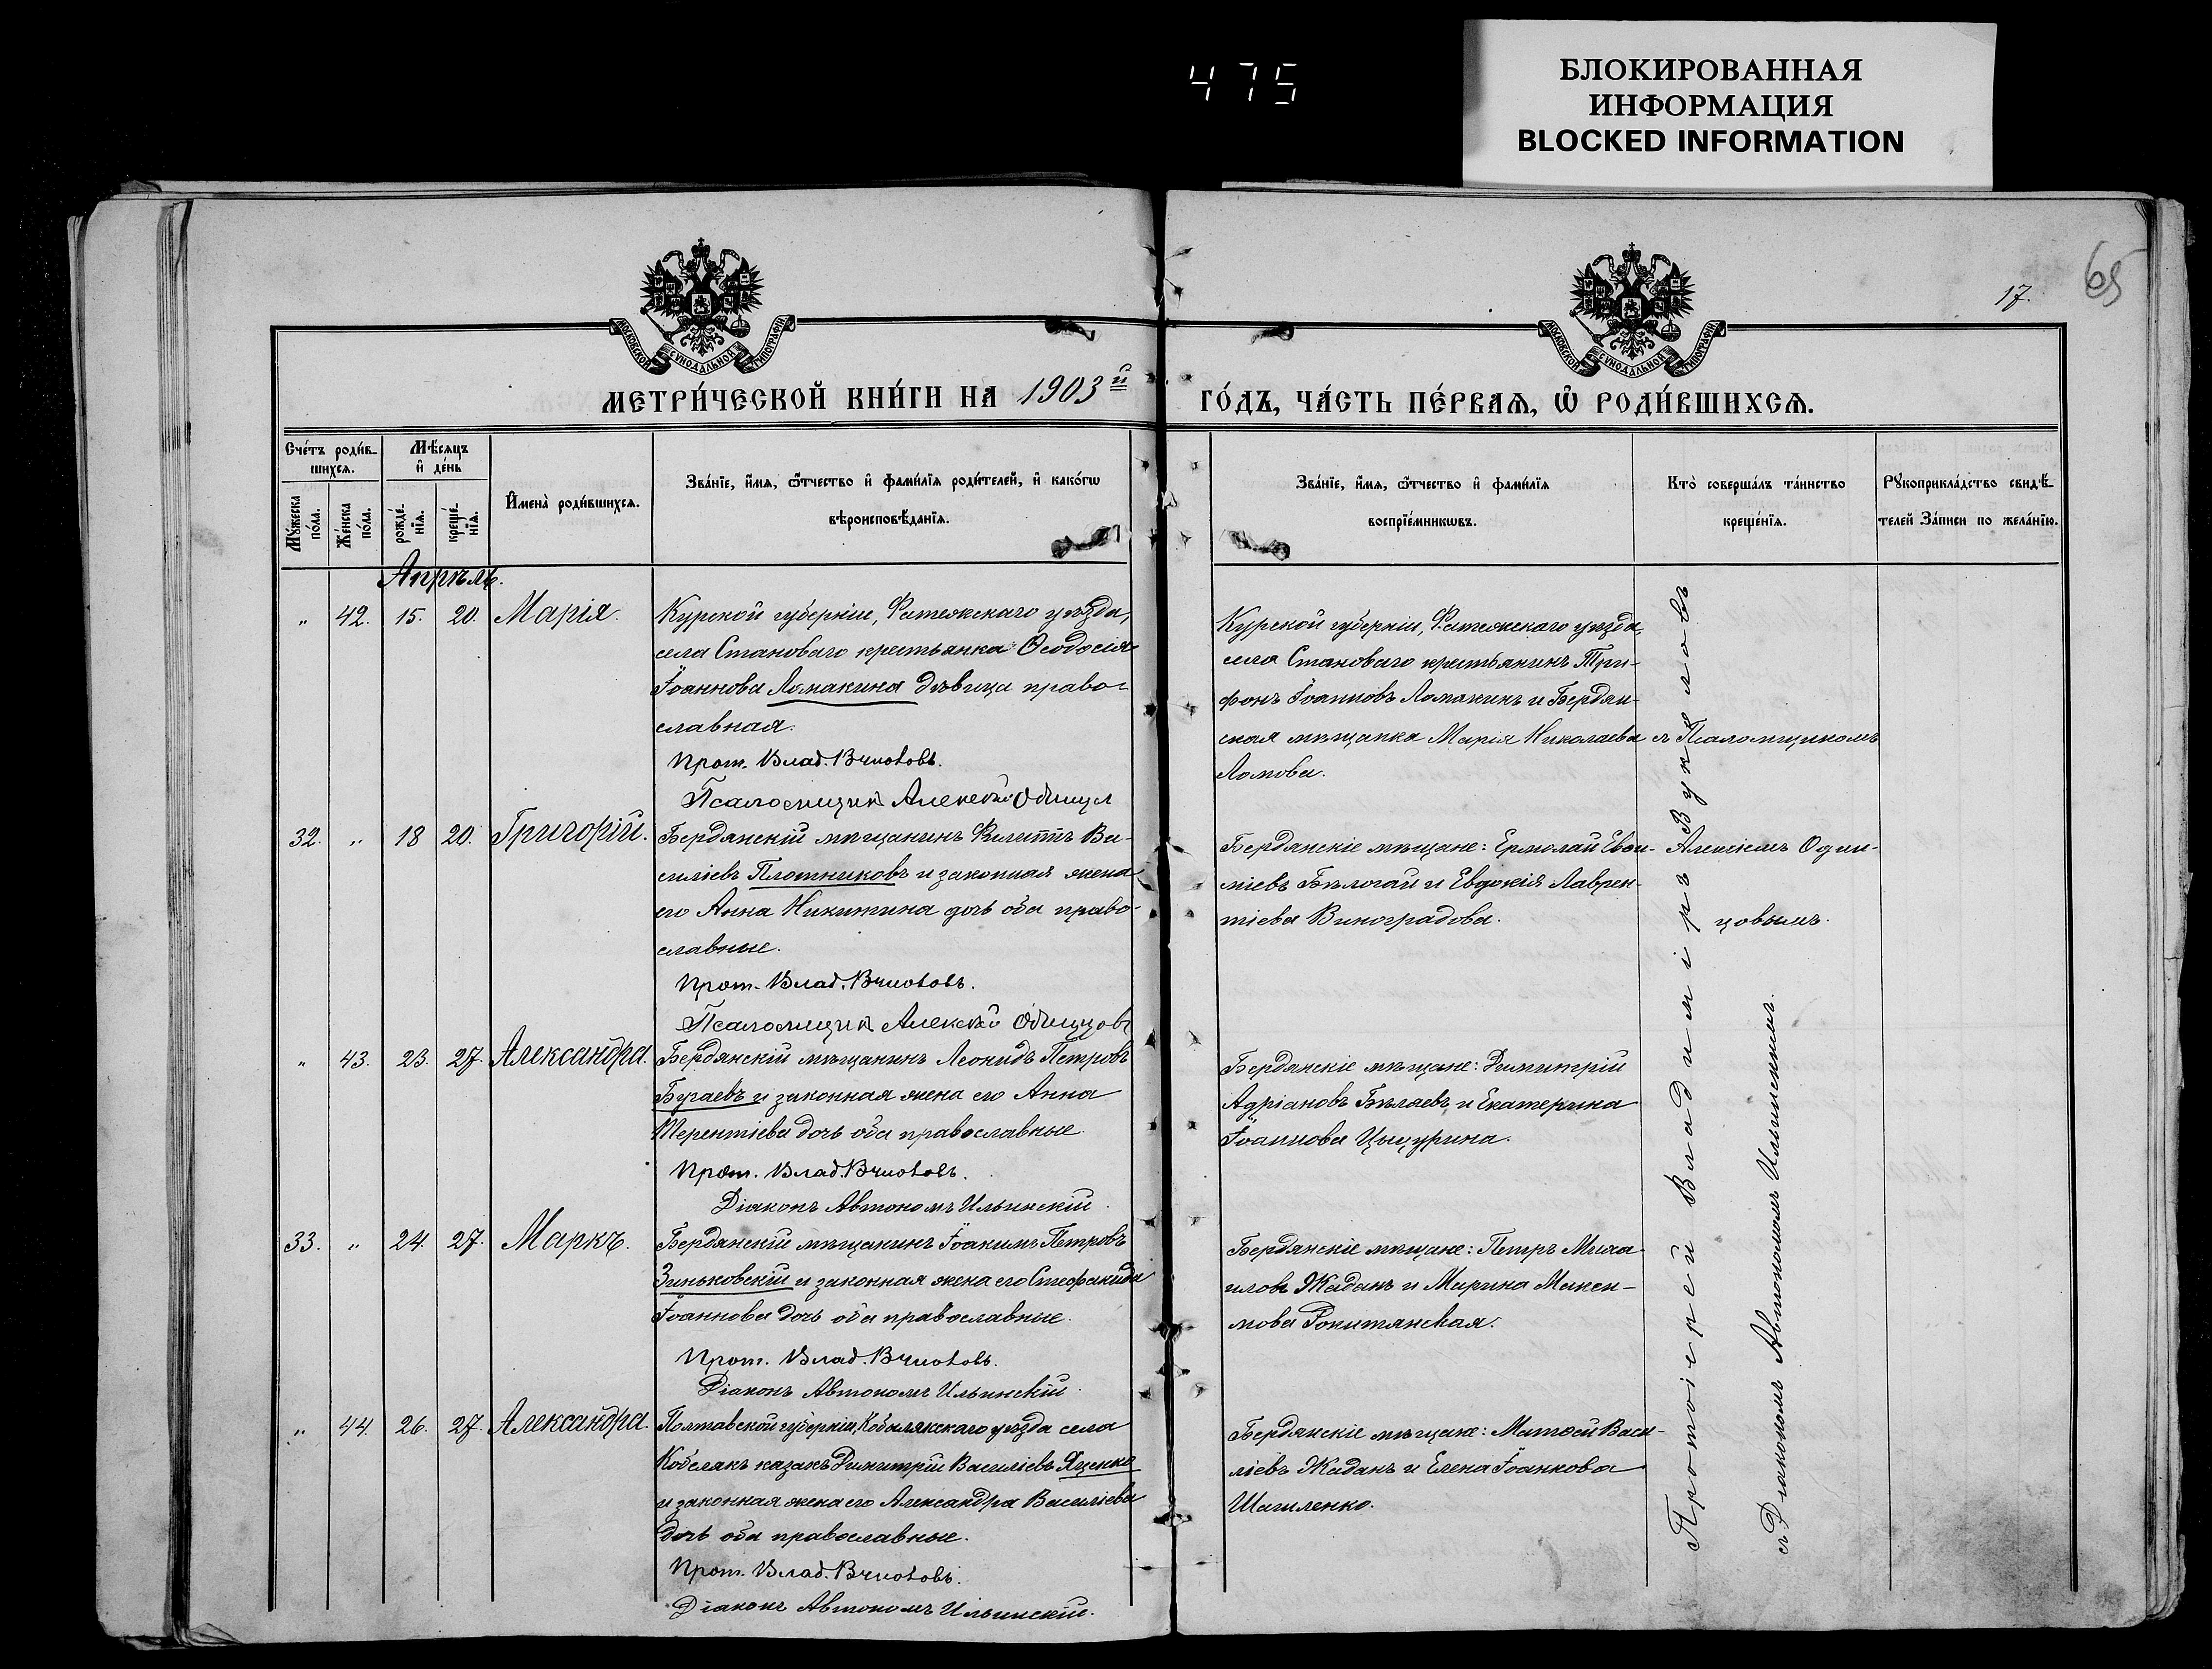 475
БЛОКИРОВАННАЯ
ИНФОРМАЦИЯ
BLOCKED INFORMATION
65
17.
МОСКОВСКОЙ СУНОДАЛЬНОЙ ТИПОГРАФІИ
МОСКОВСКОЙ СУНОДАЛЬНОЙ ТИПОГРАФІИ
МЕТРИ́ЧЕСКОЙ КНИ́ГИ НА 1903й ГО́ДЪ, ЧА́СТЬ ПЕ́РВАѦ, Ѡ РОДИ́ВШИХСѦ.
Сче́тъ роди́вшихся.
Мужеска по́ла.
Же́нска по́ла.
Мѣ́сяцъ и де́нь
рожде́нїя.
креще́нїя.
И́мена̀ роди́вшихся.
Зва́нїе, и́мя, ѻ́тчество и фами́лїя роди́телей, и како́гѡ
вѣроисповѣ́данїя.
Зва́нїе, и́мя, ѻ́тчество и фами́лїя
воспрїе́мникѡвъ.
Кто̀ соверша́лъ та́инство
креще́нїя.
Рꙋкоприкла́дство свидѣ́-
телей за́писи по жела́нїю.
Апрѣль.
„ 42. 15. 20. Марія.
Курской губерніи, Фатежскаго уѣзда,
села Становаго крестьянка Ѳеодосія
Іоаннова Ломакина дѣвица право-
славная.
Прот. Влад. Вуколовъ.
Псаломщикъ Алексѣй Одинц
Курской губерніи, Фатежскаго уѣзда,
села Становаго крестьянинъ Три-
фонъ Іоанновъ Ломакинъ и Бердян-
ская мѣщанка Марія Николаева
Ломова.
32. „ 18 20. Григорій.
Бердянскій мѣщанинъ Филиппъ Ва-
силіевъ Плотниковъ и законная жена
его Анна Никитина дочь оба право-
славные.
Прот. Влад. Вуколовъ.
Псаломщикъ Алексѣй Одинцовъ
Бердянскіе мѣщане: Ермолай Евѳи-
міевъ Бѣлогай и Евдокія Лаврен-
тіева Виноградова.
„ 43. 23. 27. Александра.
Бердянскій мѣщанинъ Леонидъ Петровъ
Бугаевъ и законная жена его Анна
Терентіева дочь оба православные.
Прот. Влад. Вуколовъ.
Діаконъ Автономъ Ильинскій.
Бердянскіе мѣщане: Димитрій
Адріановъ Бѣляевъ и Екатерина
Іоаннова Цыцурина.
33. „ 24. 27. Маркъ.
Бердянскій мѣщанинъ Іоакимъ Петровъ
Зиньковскій и законная жена его Стефанида
Іоаннова дочь оба православные.
Прот. Влад. Вуколовъ.
Діаконъ Автономъ Ильинскій.
Бердянскіе мѣщане: Петръ Миха-
иловъ Жаданъ и Марина Макси-
мова Рокитянская.
„ 44. 26. 27. Александра.
Полтавской губерніи, Кобелякскаго уѣзда села
Кобелякъ казакъ Димитрій Василіевъ Яценко
и законная жена его Александра Василіева
дочь оба православные.
Прот. Влад. Вуколовъ.
Діаконъ Автономъ Ильинскій.
Бердянскіе мѣщане: Матѳей Васи-
ліевъ Жаданъ и Елена Іоаннова
Шагиленко.
Протоіерей Владиміръ Вуколовъ
съ Псаломщикомъ
Алексіемъ Один-
цовымъ.
съ Діакономъ Автономомъ Ильинскимъ.